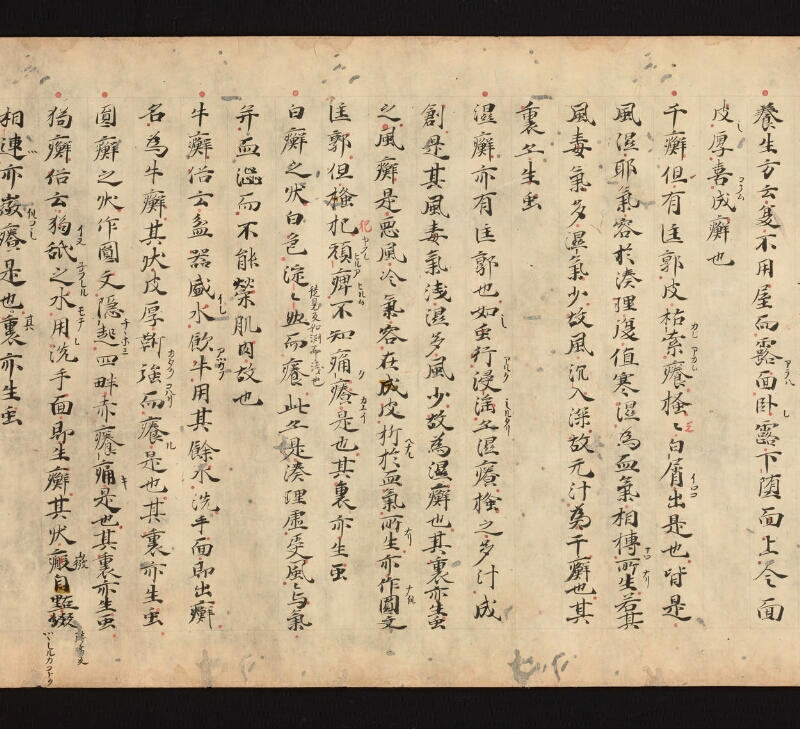 養生方云夏不用屋而露面臥露下墮面上令面
皮厚喜成癬也
干癬但有匡郭皮枯索癢搔〻白屑出是也皆是
風濕耶氣客於湊理復值寒濕為血氣相摶所生若其
風毒氣多濕氣少故風沉入深故无汁為干癬也其
裏亦生虫
濕癬亦有匡郭也如虫行浸淫亦濕癢搔之多汁成
創是其風毒氣淺濕多風少故為濕癬也其裏亦生虫
之風癬是惡風冷氣客在成皮折於血氣所生亦作圓文
匡郭但搔杷頑痺不知痛癢是也其裏亦生虫
白癬之狀白色淀〻然而癢此亦是湊理虛受風〻与氣
并血澁而不能榮肌肉故也
牛癬俗云盆器盛水飲牛用其餘水洗手面即出癬
名為牛癬其狀皮厚斷強而癢是也其裏亦生虫
圓癬之狀作圓文隱起四畔赤癢痛是也其裏亦生虫
狗癬俗云狗舐之水用洗手面即生癬其狀癜白點綴
相連亦微癢是也其裏亦生虫